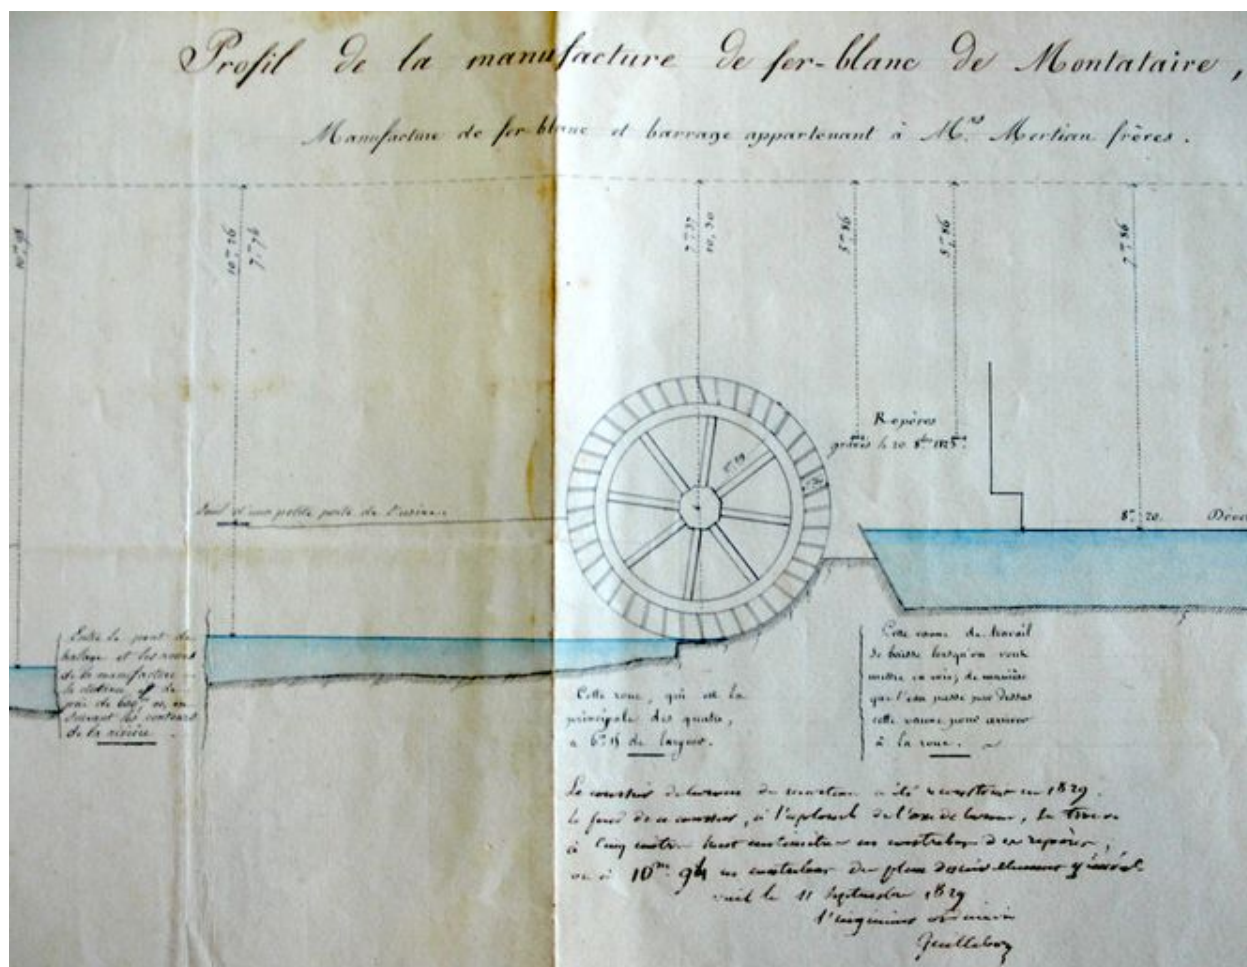 Profil de la manufacture de fer-blanc de Montataire,
Manufacture de fer-blanc et barrage appartenant à M.rs Mertian frères.
10.m 98
10.m 26
7.m 76
7.m 37
10,30
5.m 86
5.m 86
7.m 86
Repères
gravés le 20 8.bre 1825.
Seuil d'une petite porte de l'usine.
8.m 20.
Entre le pont de
halage et les roues
de la manufacture
la distance est de
près de 600m, en
suivant les contours
de la rivière
Cette roue, qui est la
principale des quatre,
a 6.m de largeur.
Cette vanne de travail
se baisse lorsqu'on veut
mettre en voie, de manière
que l'eau passe par dessus
cette vanne pour arriver
à la roue.
Le coursier de la roue du a été reconstruit en 1829.
le fond de ce coursier, à l'aplomb de l'axe de la roue, se trouve
à Cinq mètres huit centimètres en contrebas des repères,
ou à 10m. 94 en contrebas du plan de nivellement général
le 11 Septembre 1829
l'ingénieur ordinaire